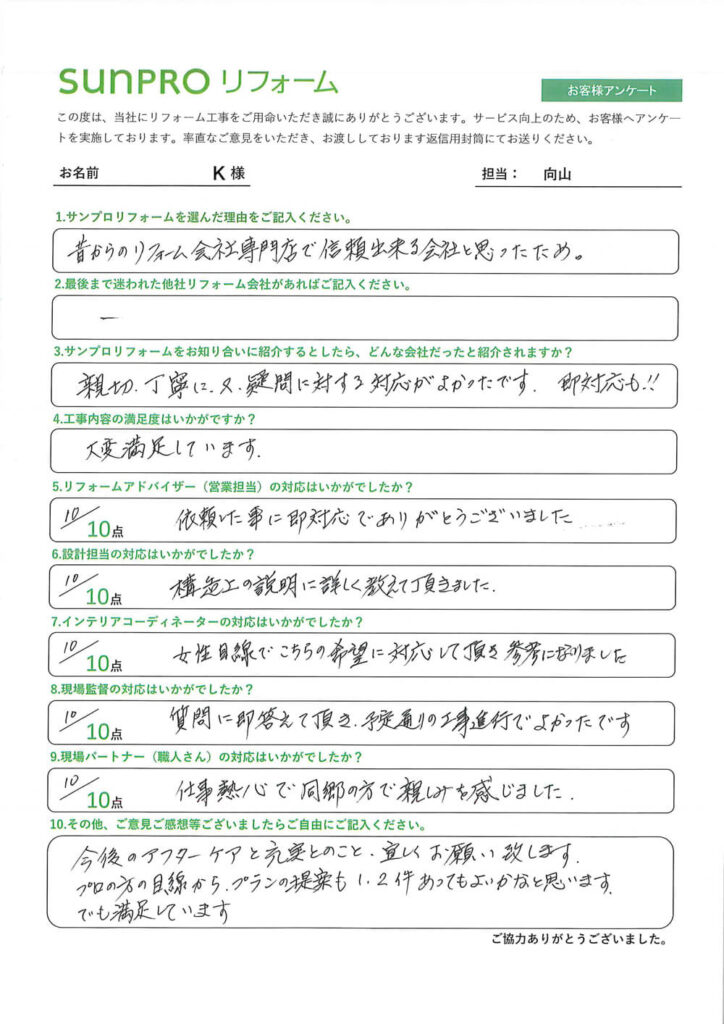 sunPRO リフォーム
お客様アンケート
この度は、当社にリフォーム工事をご用命いただき誠にありがとうございます。サービス向上のため、お客様へアンケー
トを実施しております。率直なご意見をいただき、お渡ししております返信用封筒にてお送りください。
お名前 K 様 担当： 向山
1.サンプロリフォームを選んだ理由をご記入ください。
昔からのリフォーム会社専門店で信頼出来る会社と思ったため。
2.最後まで迷われた他社リフォーム会社があればご記入ください。
ー
3.サンプロリフォームをお知り合いに紹介するとしたら、どんな会社だったと紹介されますか？
親切、丁寧に、又、疑問に対する対応がよかったです。 即対応も!!
4.工事内容の満足度はいかがですか？
大変満足しています.
5.リフォームアドバイザー（営業担当）の対応はいかがでしたか？
10/10点 依頼した事に即対応でありがとうございました
6.設計担当の対応はいかがでしたか？
10/10点 構造上の説明に詳しく教えて頂きました.
7.インテリアコーディネーターの対応はいかがでしたか？
10/10点 女性目線でこちらの希望に対応して頂き参考になりました
8.現場監督の対応はいかがでしたか？
10/10点 質問に即答えて頂き、予定通りの工事進行でよかったです
9.現場パートナー（職人さん）の対応はいかがでしたか？
10/10点 仕事熱心で同郷の方で親しみを感じました.
10.その他、ご意見ご感想等ございましたらご自由にご記入ください。
今後のアフターケアと充実とのこと、宜しくお願い致します.
プロの方の目線から、プランの提案も1、2件あってもよいかなと思います.
でも満足しています
ご協力ありがとうございました。